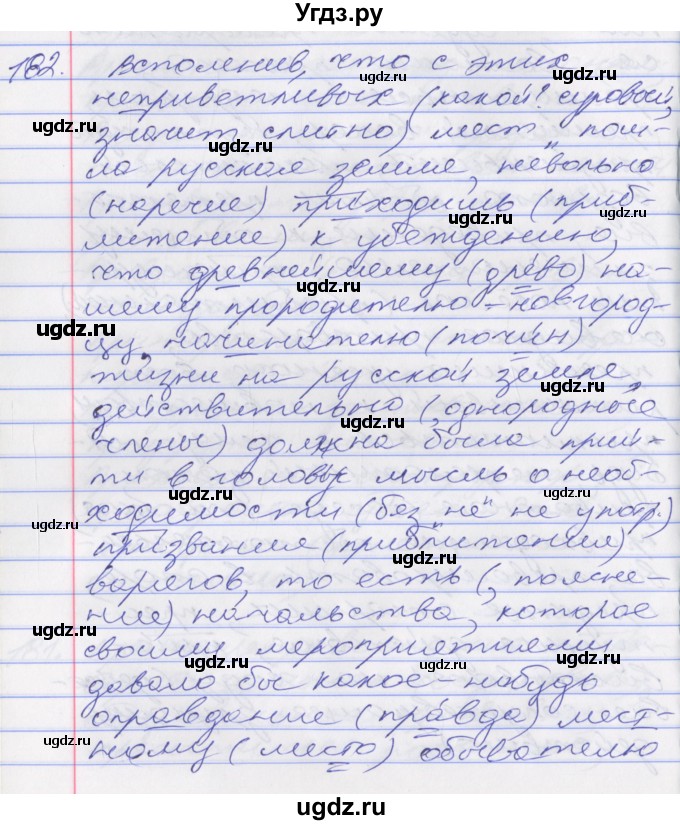 Угдз.ру
182. Вспомнив, что с этих
неприветливых (какой? суровый,
значит слитно) мест пош-
ла русская земля, невольно
(наречие) приходишь (приб-
лижение) к убеждению,
что древнейшему (древо) на-
шему прородителю-новгород-
цу, начинателю (почин)
жизни на русской земле
действительно (, однородные
члены) должна была прий-
ти в голову мысль о необ-
ходимости (без "не" не употр.)
призвания (приближения)
варягов, то есть (, поясне-
ние) начальства, которое
своими мероприятиями
давало бы какое-нибудь
оправдание (правда) мест-
ному (место) обывателю
ugdz.ru